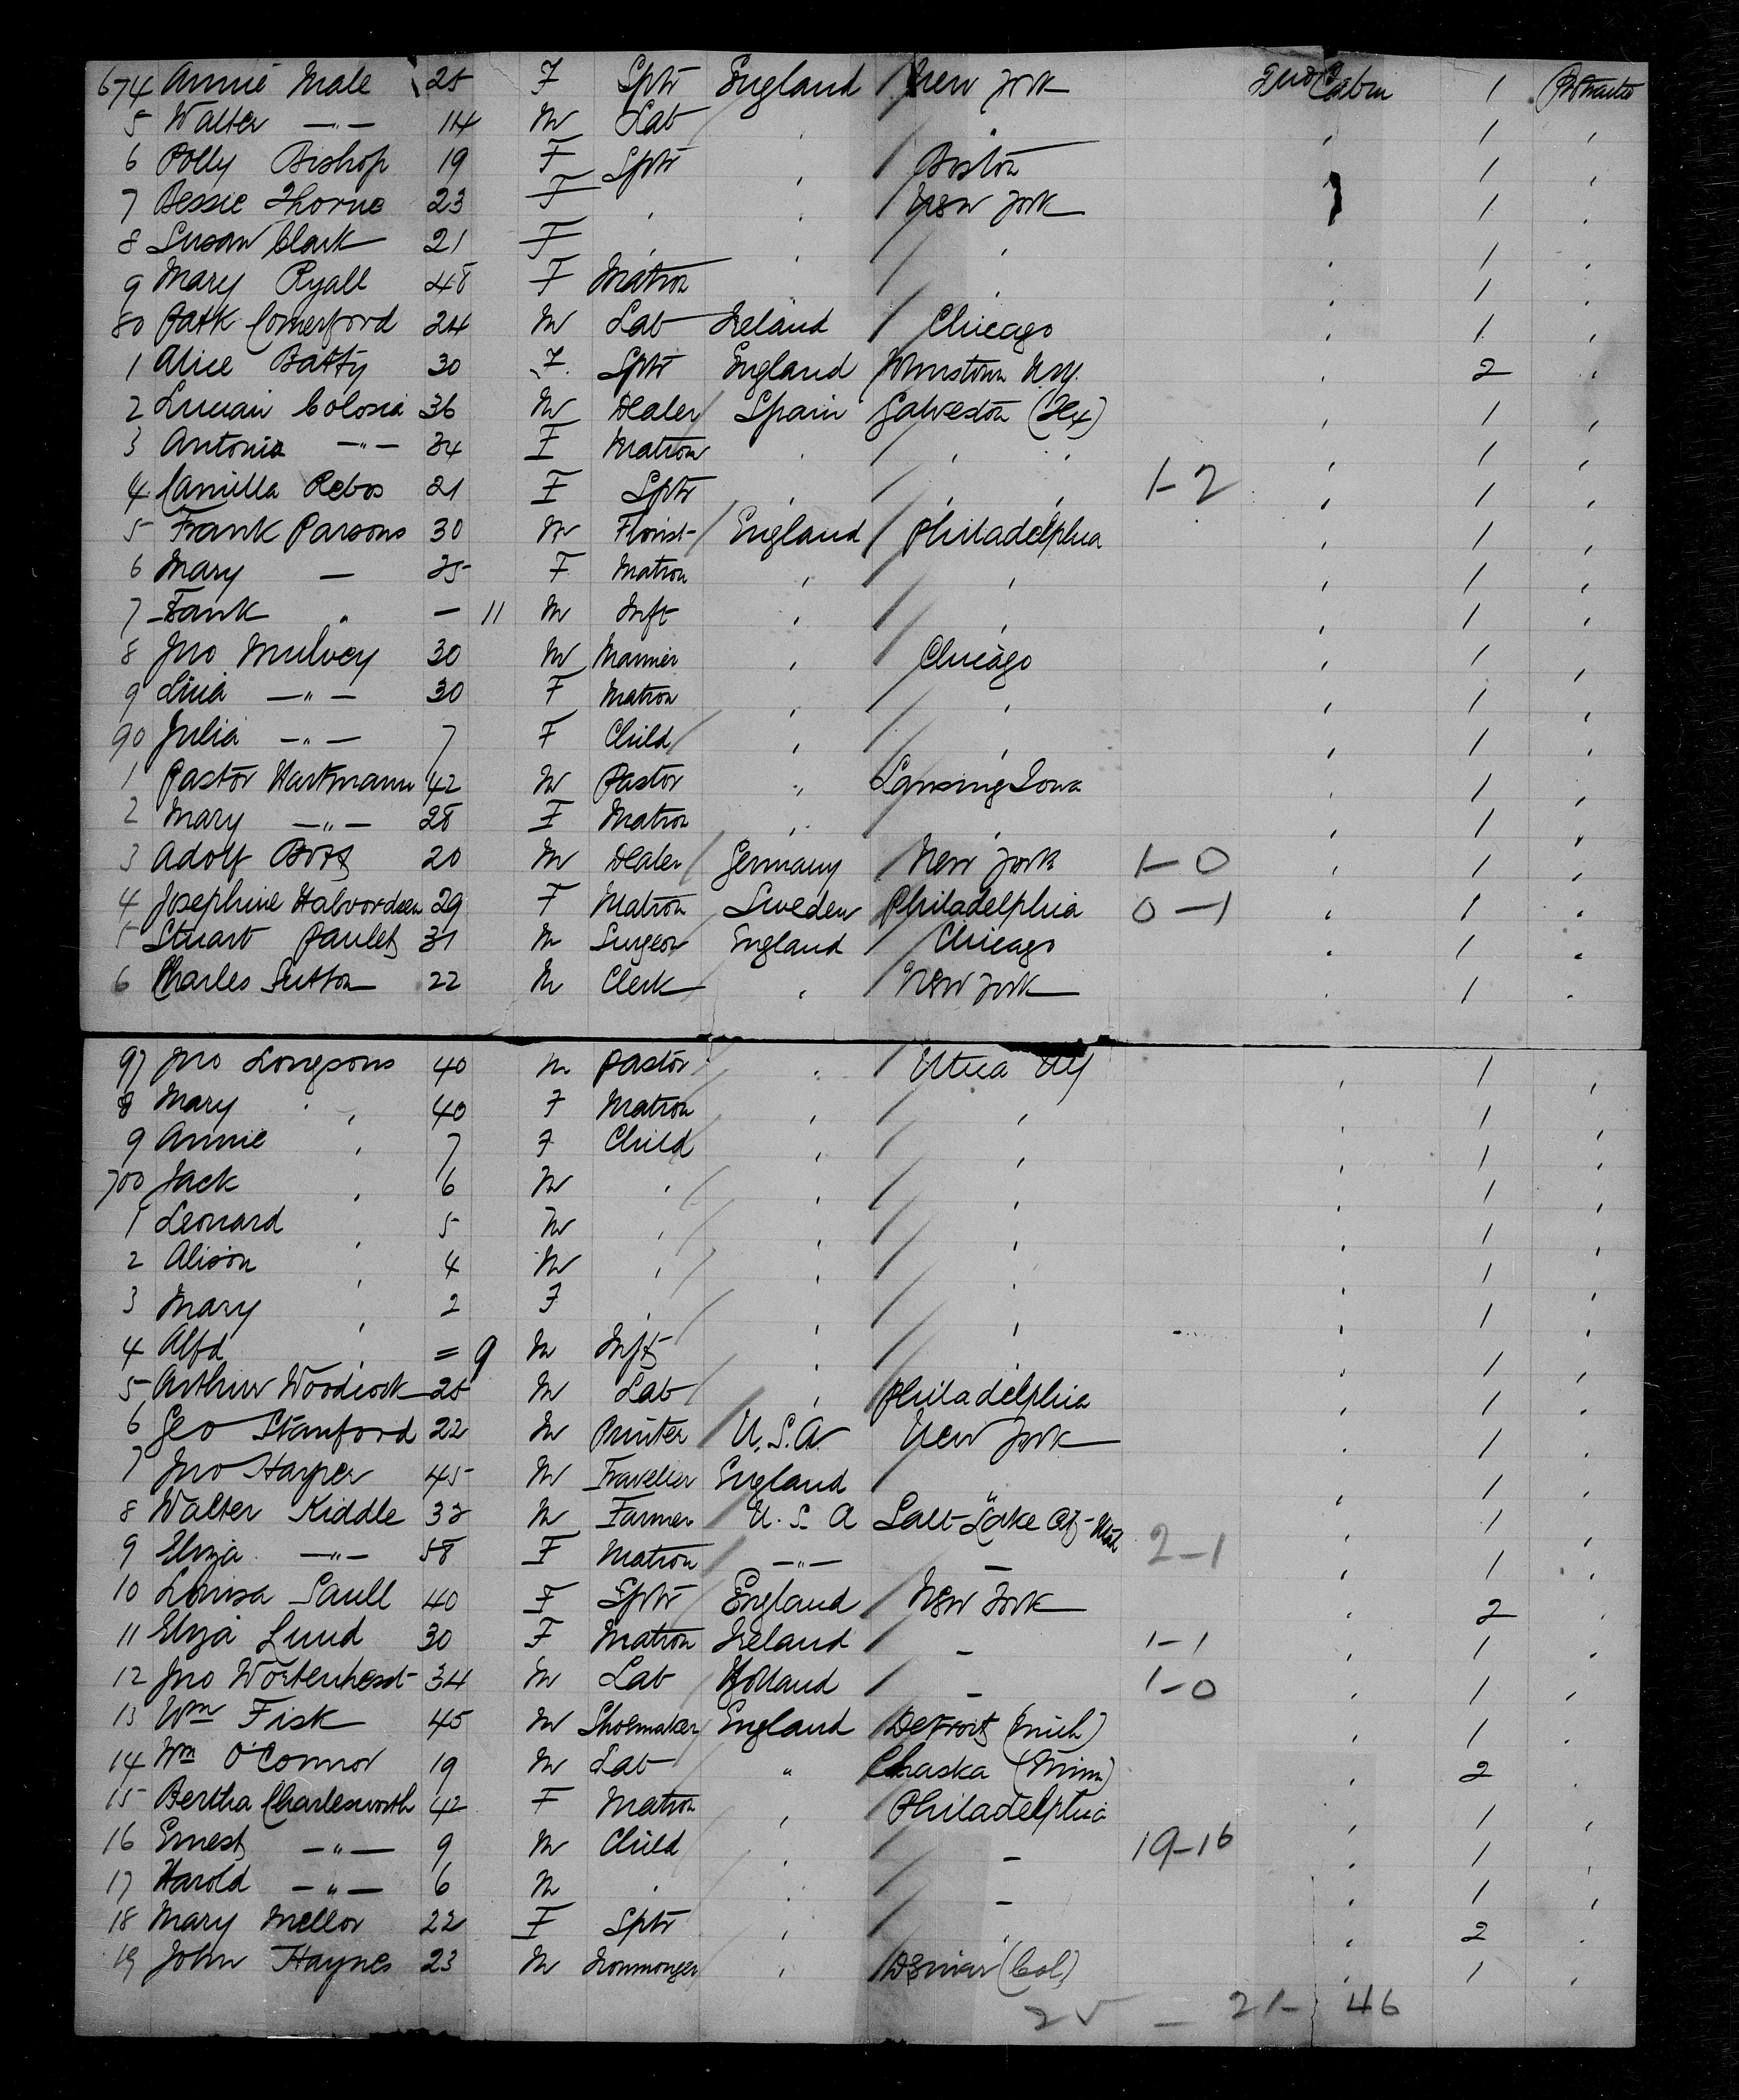 674 Annie Male 25 F Sptr England / New York 2nd Cabin 1 Protracted
5 Walter —"— 14 M Lab / , / " , 1 ,
6 Polly Bishop 19 F Sptr , / Boston , 1 ,
7 Bessie Thorne 23 F , , / New York 1 ,
8 Susan Clark 21 F , , / , , 1 ,
9 Mary Ryall 48 F Matron , / , , 1 ,
80 Patk Comerford 24 M Lab Ireland / Chicago , 1 ,
1 Alice Batty 30 F. Sptr England Johnstown N.Y. , 2 ,
2 Lucian Colosia 36 M Dealer / Spain Galveston (Tex) , 1 ,
3 Antonia —"— 34 F Matron , / , , , 1 ,
4 Camilla Rebos 21 F Sptr , / , , 1-2 , 1 ,
5 Frank Parsons 30 M Florist / England / Philadelphia , 1 ,
6 Mary — 25 F Matron , / , , 1 ,
7 Fank " — 11 M Inft , / , , 1 ,
8 Jno Mulvey 30 M Marrier , / Chicago , 1 ,
9 Lina —"— 30 F Matron , / , , 1 ,
90 Julia —"— 7 F Child / , / , , 1 ,
1 Pastor Hartmann 42 M Pastor " Lansing Iowa , 1 ,
2 Mary —"— 28 F Matron , / , , 1 ,
3 Adolf 20 M Dealer / Germany / New York 1-0 , 1 ,
4 Josephine 29 F Matron / Sweden Philadelphia 0-1 , 1 ,
5 Stuart Paulet 31 M Surgeon England / Chicago , 1 ,
6 Charles Sutton 22 M Clerk , / New York , 1 ,
97 Jno Longsons 40 M Pastor / , / Utica NY , 1 ,
8 Mary , , 40 F Matron , / , , 1 ,
9 Annie , 7 F Child , / , , 1 ,
700 Jack , 6 M , / , / , , 1 ,
1 Leonard , 5 M , / , / , , 1 ,
2 Alison , 4 M , / , / , , 1 ,
3 Mary , 2 F , / , / , , 1 ,
4 Alfd , = 9 M Inft / , / , 1 ,
5 Arthur Woodcock 25 M Lab / , Philadelphia , 1 ,
6 Geo Stanford 22 M Printer / U.S.A. New York , 1 ,
7 Jno Harper 45 M Traveller England / " , 1 ,
8 Walter Kiddle 33 M Farmer U.S.A Salt Lake Cty Utah , 1 ,
9 Eliza —"— 58 F Matron / —"— — 2-1 , 1 ,
10 Louisa Saull 40 F Sptr / England / New York , 2 ,
11 Eliza Lund 30 F Matron Ireland / — 1-1 , 1 ,
12 Jno 34 M Lab Holland / — 1-0 , 1 ,
13 Wm Fisk 45 M Shoemaker / England / Detroit (Mich) , 1 ,
14 Wm O'Connor 19 M Lab " Chaska (Minn) , 2 ,
15 Bertha Charlesworth 42 F Matron , / Philadelphia , 1 ,
16 Ernest —"— 9 M Child , / — 19-16 , 1 ,
17 Harold —"— 6 M , , / — , 1 ,
18 Mary Mellor 22 F Sptr , / , , 2 ,
19 John Haynes 23 M Ironmonger , / Denver (Col) , 1 ,
25 — 21 - 46